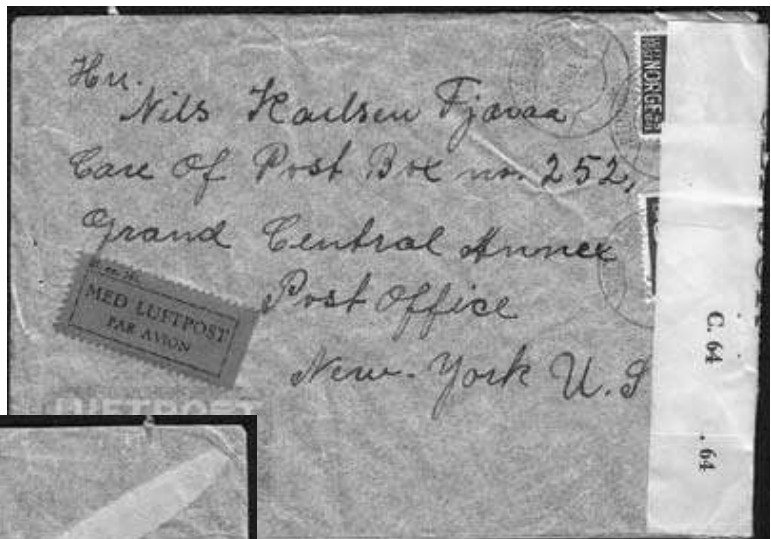 Hrr.
Nils Karlsen Fjævaa
Care Of Post Box no. 252,
Grand Central Annex
Post Office
New-York U.S
NORGE
MED LUFTPOST
PAR AVION
LUFTPOST
C. 64
. 64